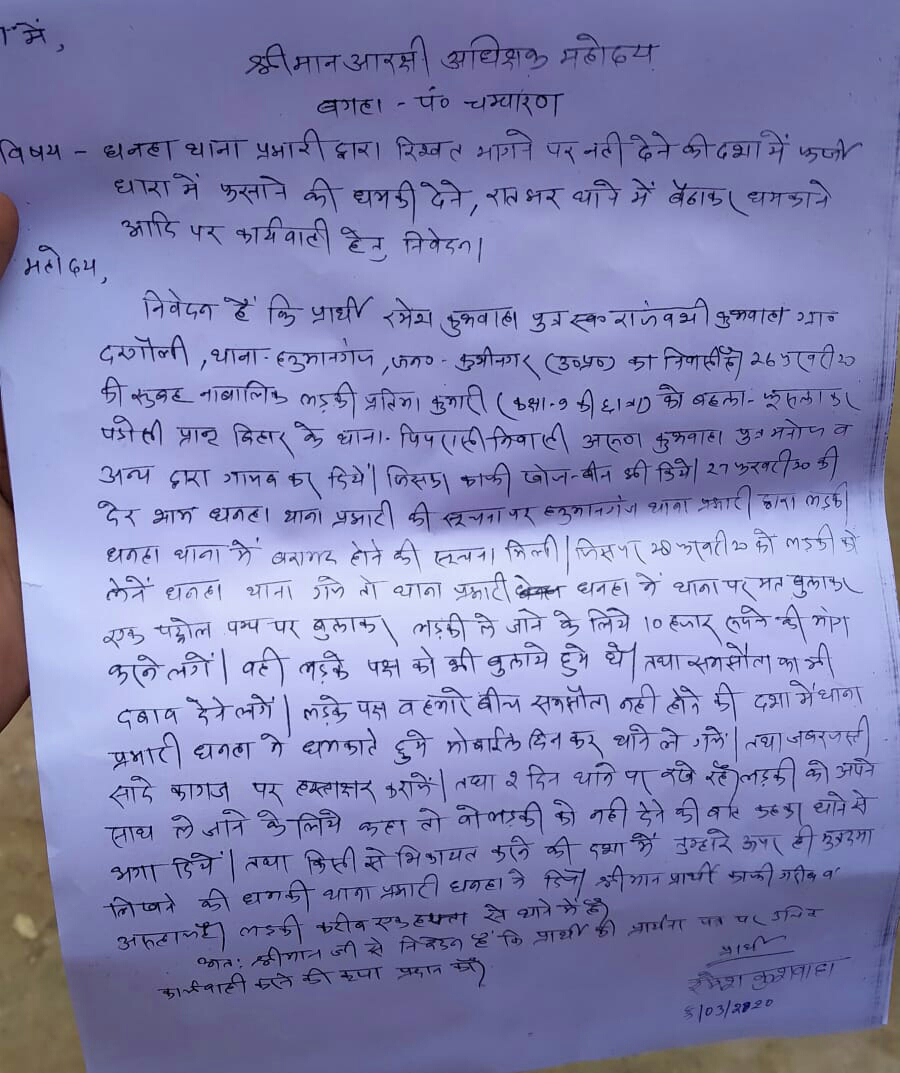 ा में,
श्रीमान आरक्षी अधिक्षक महोदय
बगहा - पं० चम्पारण
विषय - धनहा थाना प्रभारी द्वारा रिश्वत मांगने पर नही देने की दशा में फर्जी
धारा में फसाने की धमकी देने, रातभर थाने में बैठाकर धमकाने
आदि पर कार्यवाही हेतु निवेदन।
महोदय,
निवेदन है कि प्रार्थी रमेश कुशवाहा पुत्र स्व० राजवंशी कुशवाहा ग्रा०
दरगौली, थाना- हनुमानगंज, जन०- कुशीनगर (उ०प्र०) का निवासी है। 26 फरवरी 20
की सुबह नाबालिक लड़की प्रतिमा कुमारी (कक्षा-9 की छात्रा) को बहला-फुसला कर
पडोसी प्रान्त बिहार के थाना- पिपरासी निवासी अरुण कुशवाहा पुत्र मनोज व
अन्य द्वारा गायब कर दिये। जिसका काफी खोज-बीन भी किये। 27 फरवरी 20 की
देर शाम धनहा थाना प्रभारी की सूचना पर हनुमानगंज थाना प्रभारी द्वारा लड़की
धनहा थाना में बरामद होने की सूचना मिली। जिसपर 28 फरवरी 20 को लड़की को
लेने धनहा थाना गये तो थाना प्रभारी धनहा ने थाना पर मत बुलाकर
एक पट्रोल पम्प पर बुलाकर लड़की ले जाने के लिये 10 हजार रूपये की मांग
करने लगें। वही लड़के पक्ष को भी बुलाये हुये थे। तथा समझौता का भी
दबाव देने लगें। लड़के पक्ष व हमारे बीच समझौता नही होने की दशा में थाना
प्रभारी धनहा ने धमकाते हुये मोबाईल छिन कर थाने ले गये। तथा जबरजस्ती
सादे कागज पर हस्ताक्षर करायें। तथा 2 दिन थाने पर रखे रहें। लड़की को अपने
साथ ले जाने के लिये कहा तो वो लड़की को नही देने की बात कहकर थाने से
भगा दिये। तथा किसी से शिकायत करने की दशा में तुम्हारे ऊपर ही मुकदमा
लिखने की धमकी थाना प्रभारी धनहा ने दिये। श्रीमान प्रार्थी काफी गरीब व
असहाय है। लड़की करीब एक हफ्ता से थाने में है।
अत: श्रीमान जी से निवेदन है कि प्रार्थी की प्रार्थना पत्र पर उचित
कार्यवाही करने की कृपा प्रदान करें।
प्रार्थी
रमेश कुशवाहा
/03/2020